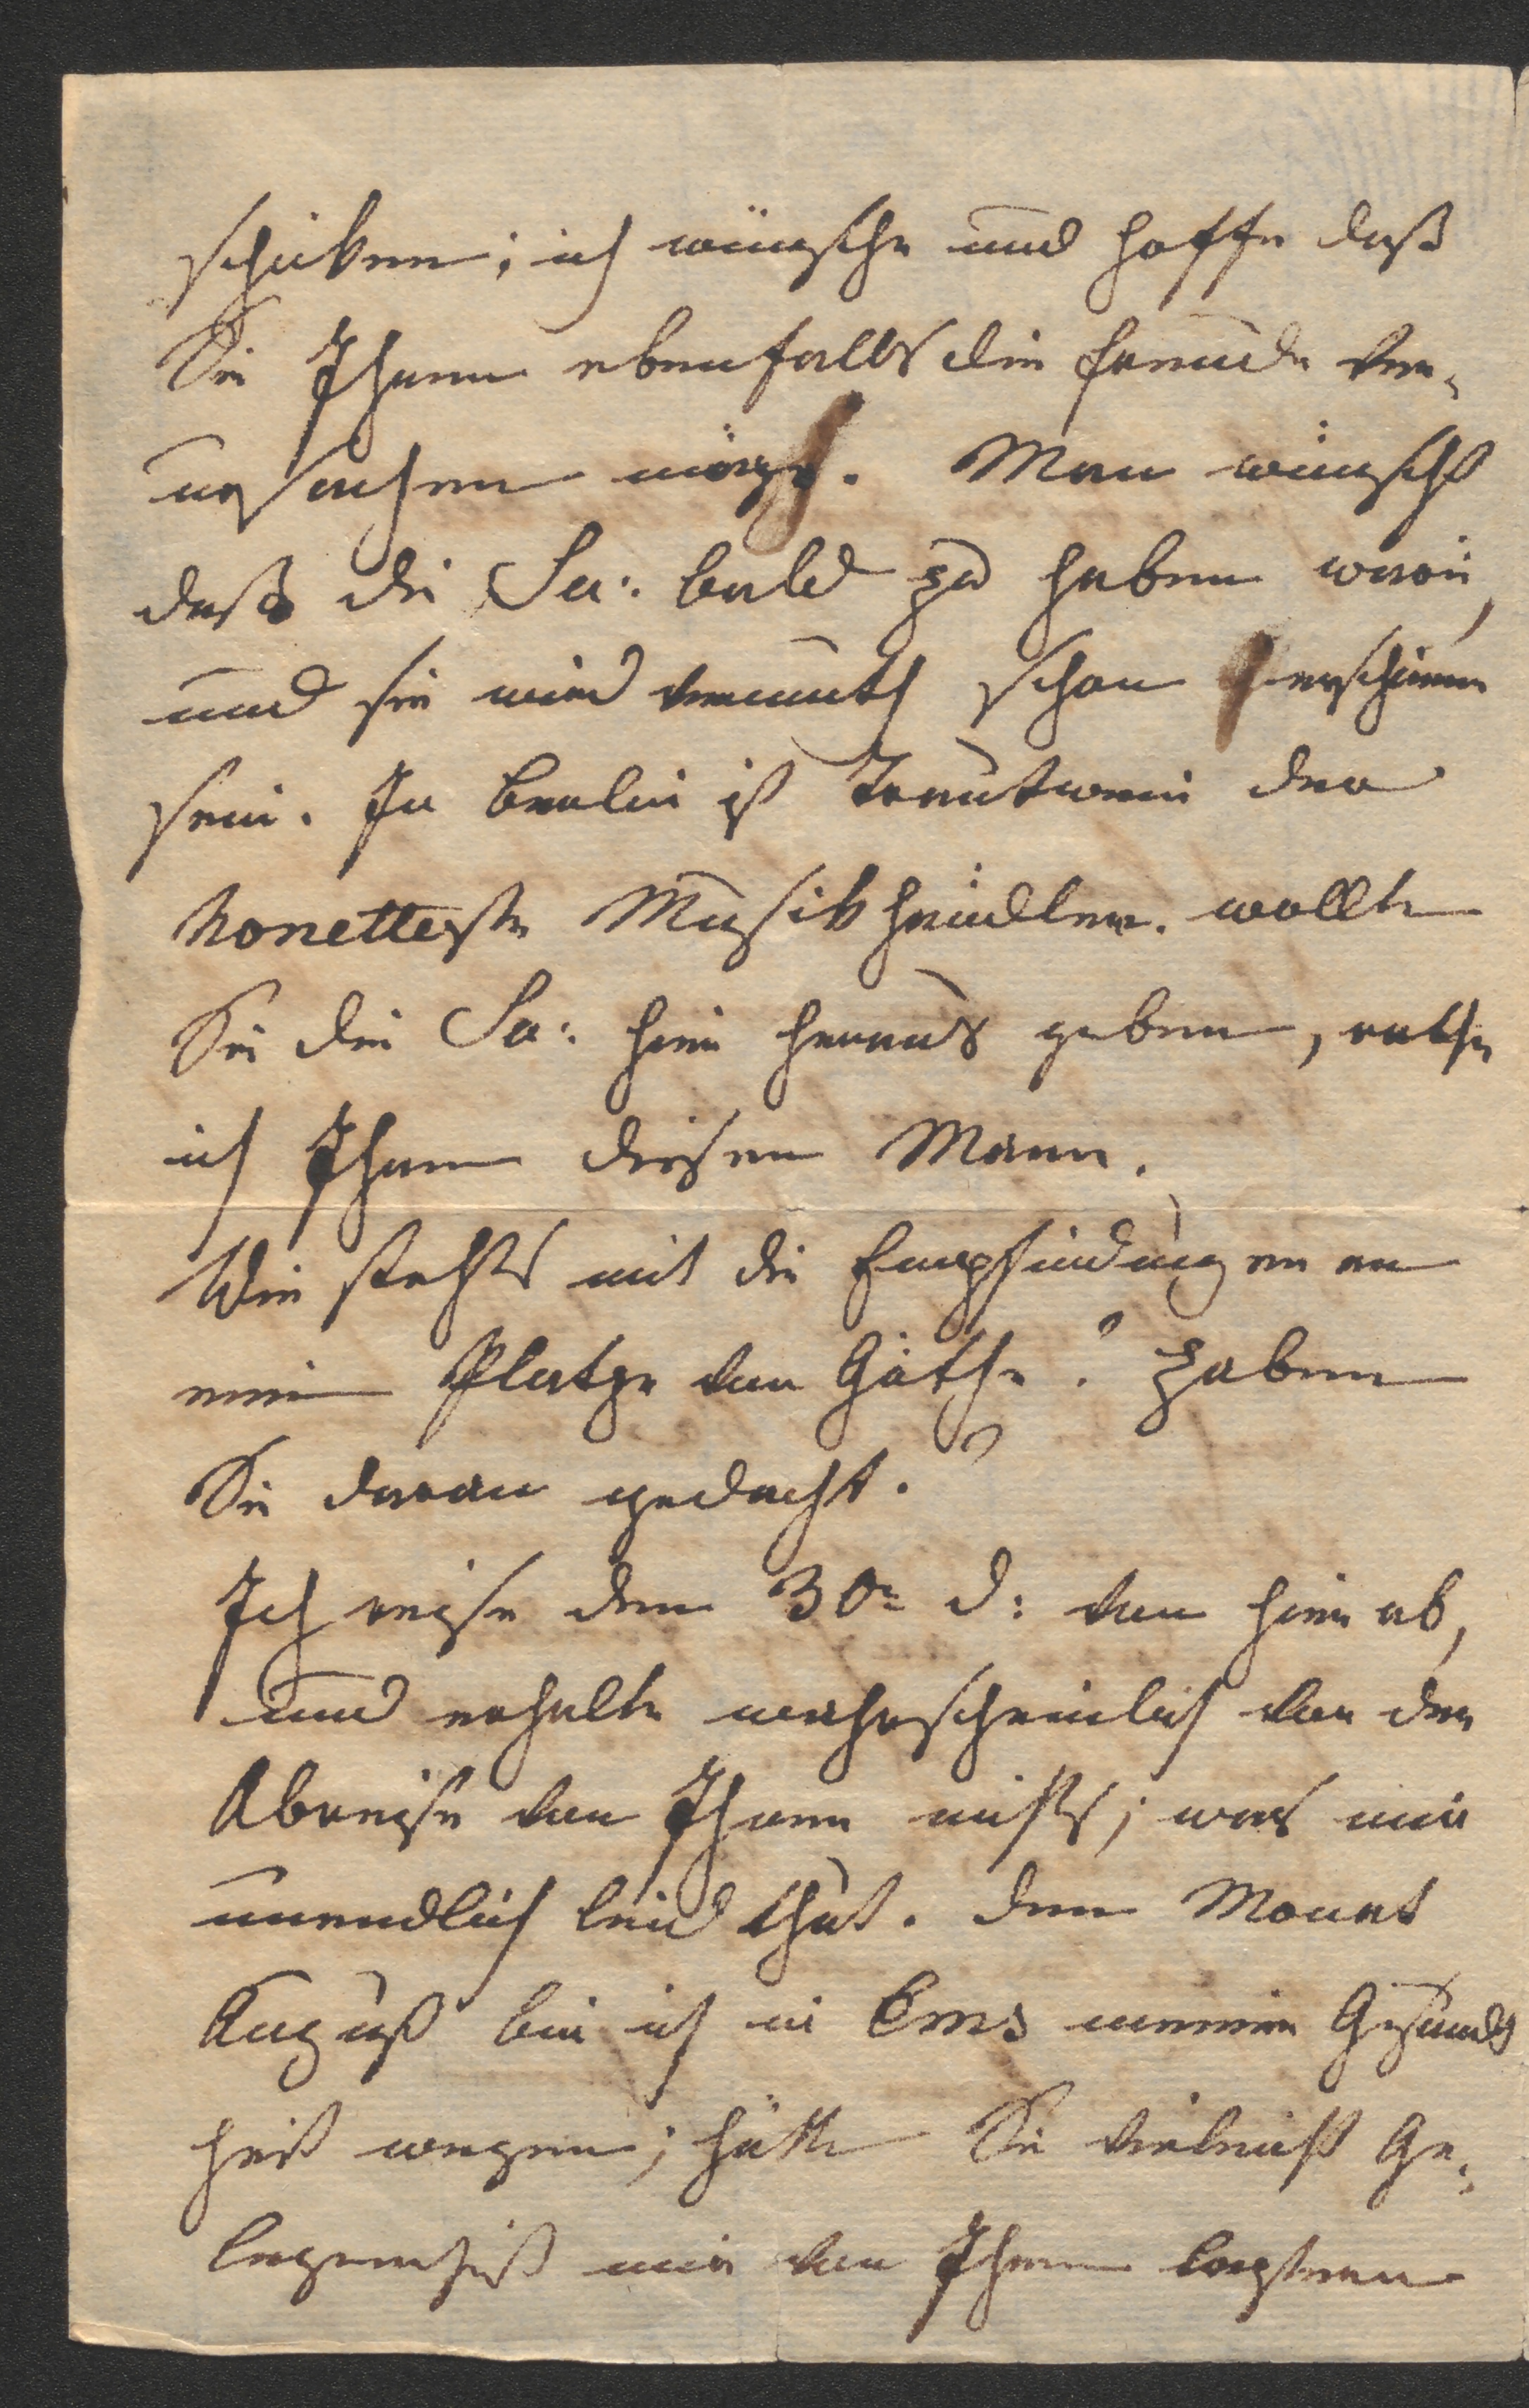 schicken; ich wünsche und hoffe daß
Sie Ihnen ebenfalls die Freude ver-
ursachen möge. Man wünscht
daß die Sa: bald zu haben wäre,
und sie wird vermuth schon erschienen
sein. In Berlin ist Trautwein der
honetteste Musikhändler. wollte
Sie die Sa: hier heraus geben, rathe
ich Ihnen diesen Mann.
Wie stehts mit die Empfindungen an
einem Platze von Göthe? Haben
Sie daran gedacht?
Ich reise den 30n d: von hier ab,
und erhalte wahrscheinlich vor der
Abreise von Ihnen nichts; was mir
unendlich leid thut. Den Monat
August bin ich in Ems meiner Gesund
heit wegen; hätte Sie vieleicht Ge-
legenheit mir von Ihnen